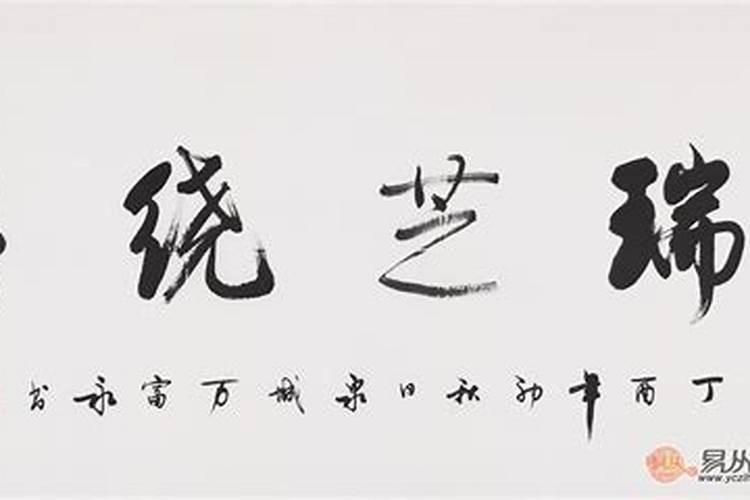 瑞芝绕
丁酉年初秋日泉城万富永书
易从